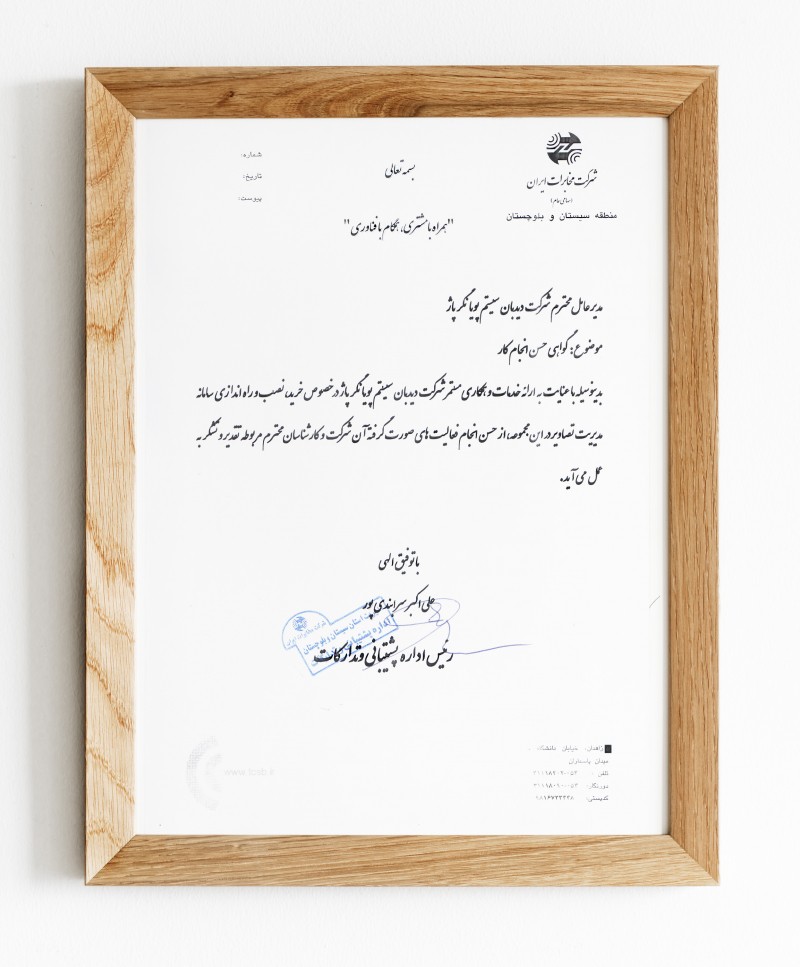 بسمه تعالی
شماره:
تاریخ:
پیوست:
شرکت مخابرات ایران
(سهامی عام)
منطقه سیستان و بلوچستان
"همراه با مشتری، همگام با فناوری"
مدیر عامل محترم شرکت دیدبان سیستم پویا نگر پاژ
موضوع: گواهی حسن انجام کار
بدینوسیله با عنایت به ارائه خدمات و همکاری مستمر شرکت دیدبان سیستم پویا نگر پاژ در خصوص خرید، نصب و راه اندازی سامانه
مدیریت تصاویر در این مجموعه، از حسن انجام فعالیت های صورت گرفته آن شرکت و کارشناسان محترم مربوطه تقدیر و تشکر به
عمل می آید.
با توفیق الهی
علی اکبر سرابندی پور
شرکت مخابرات ایران
استان سیستان و بلوچستان
اداره پشتیبانی
رئیس اداره پشتیبانی و تدارکات
زاهدان، خیابان دانشگاه
میدان پاسداران
تلفن:
دورنگار:
کدپستی: